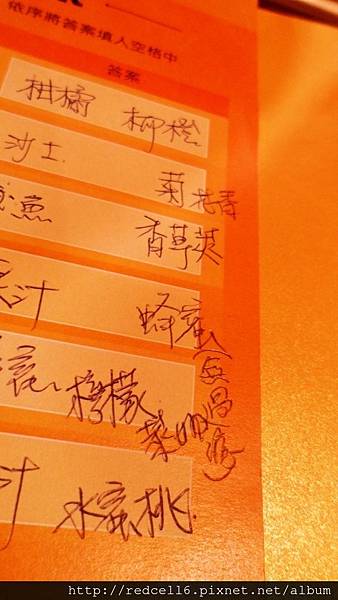 依序將答案填入空格中
答案
柑橘 柳橙
沙士. 菊花香
魚 香草莢
汁 蜂蜜
花、檸檬
汁 水蜜桃.
http://redcell6.pixnet.net/album